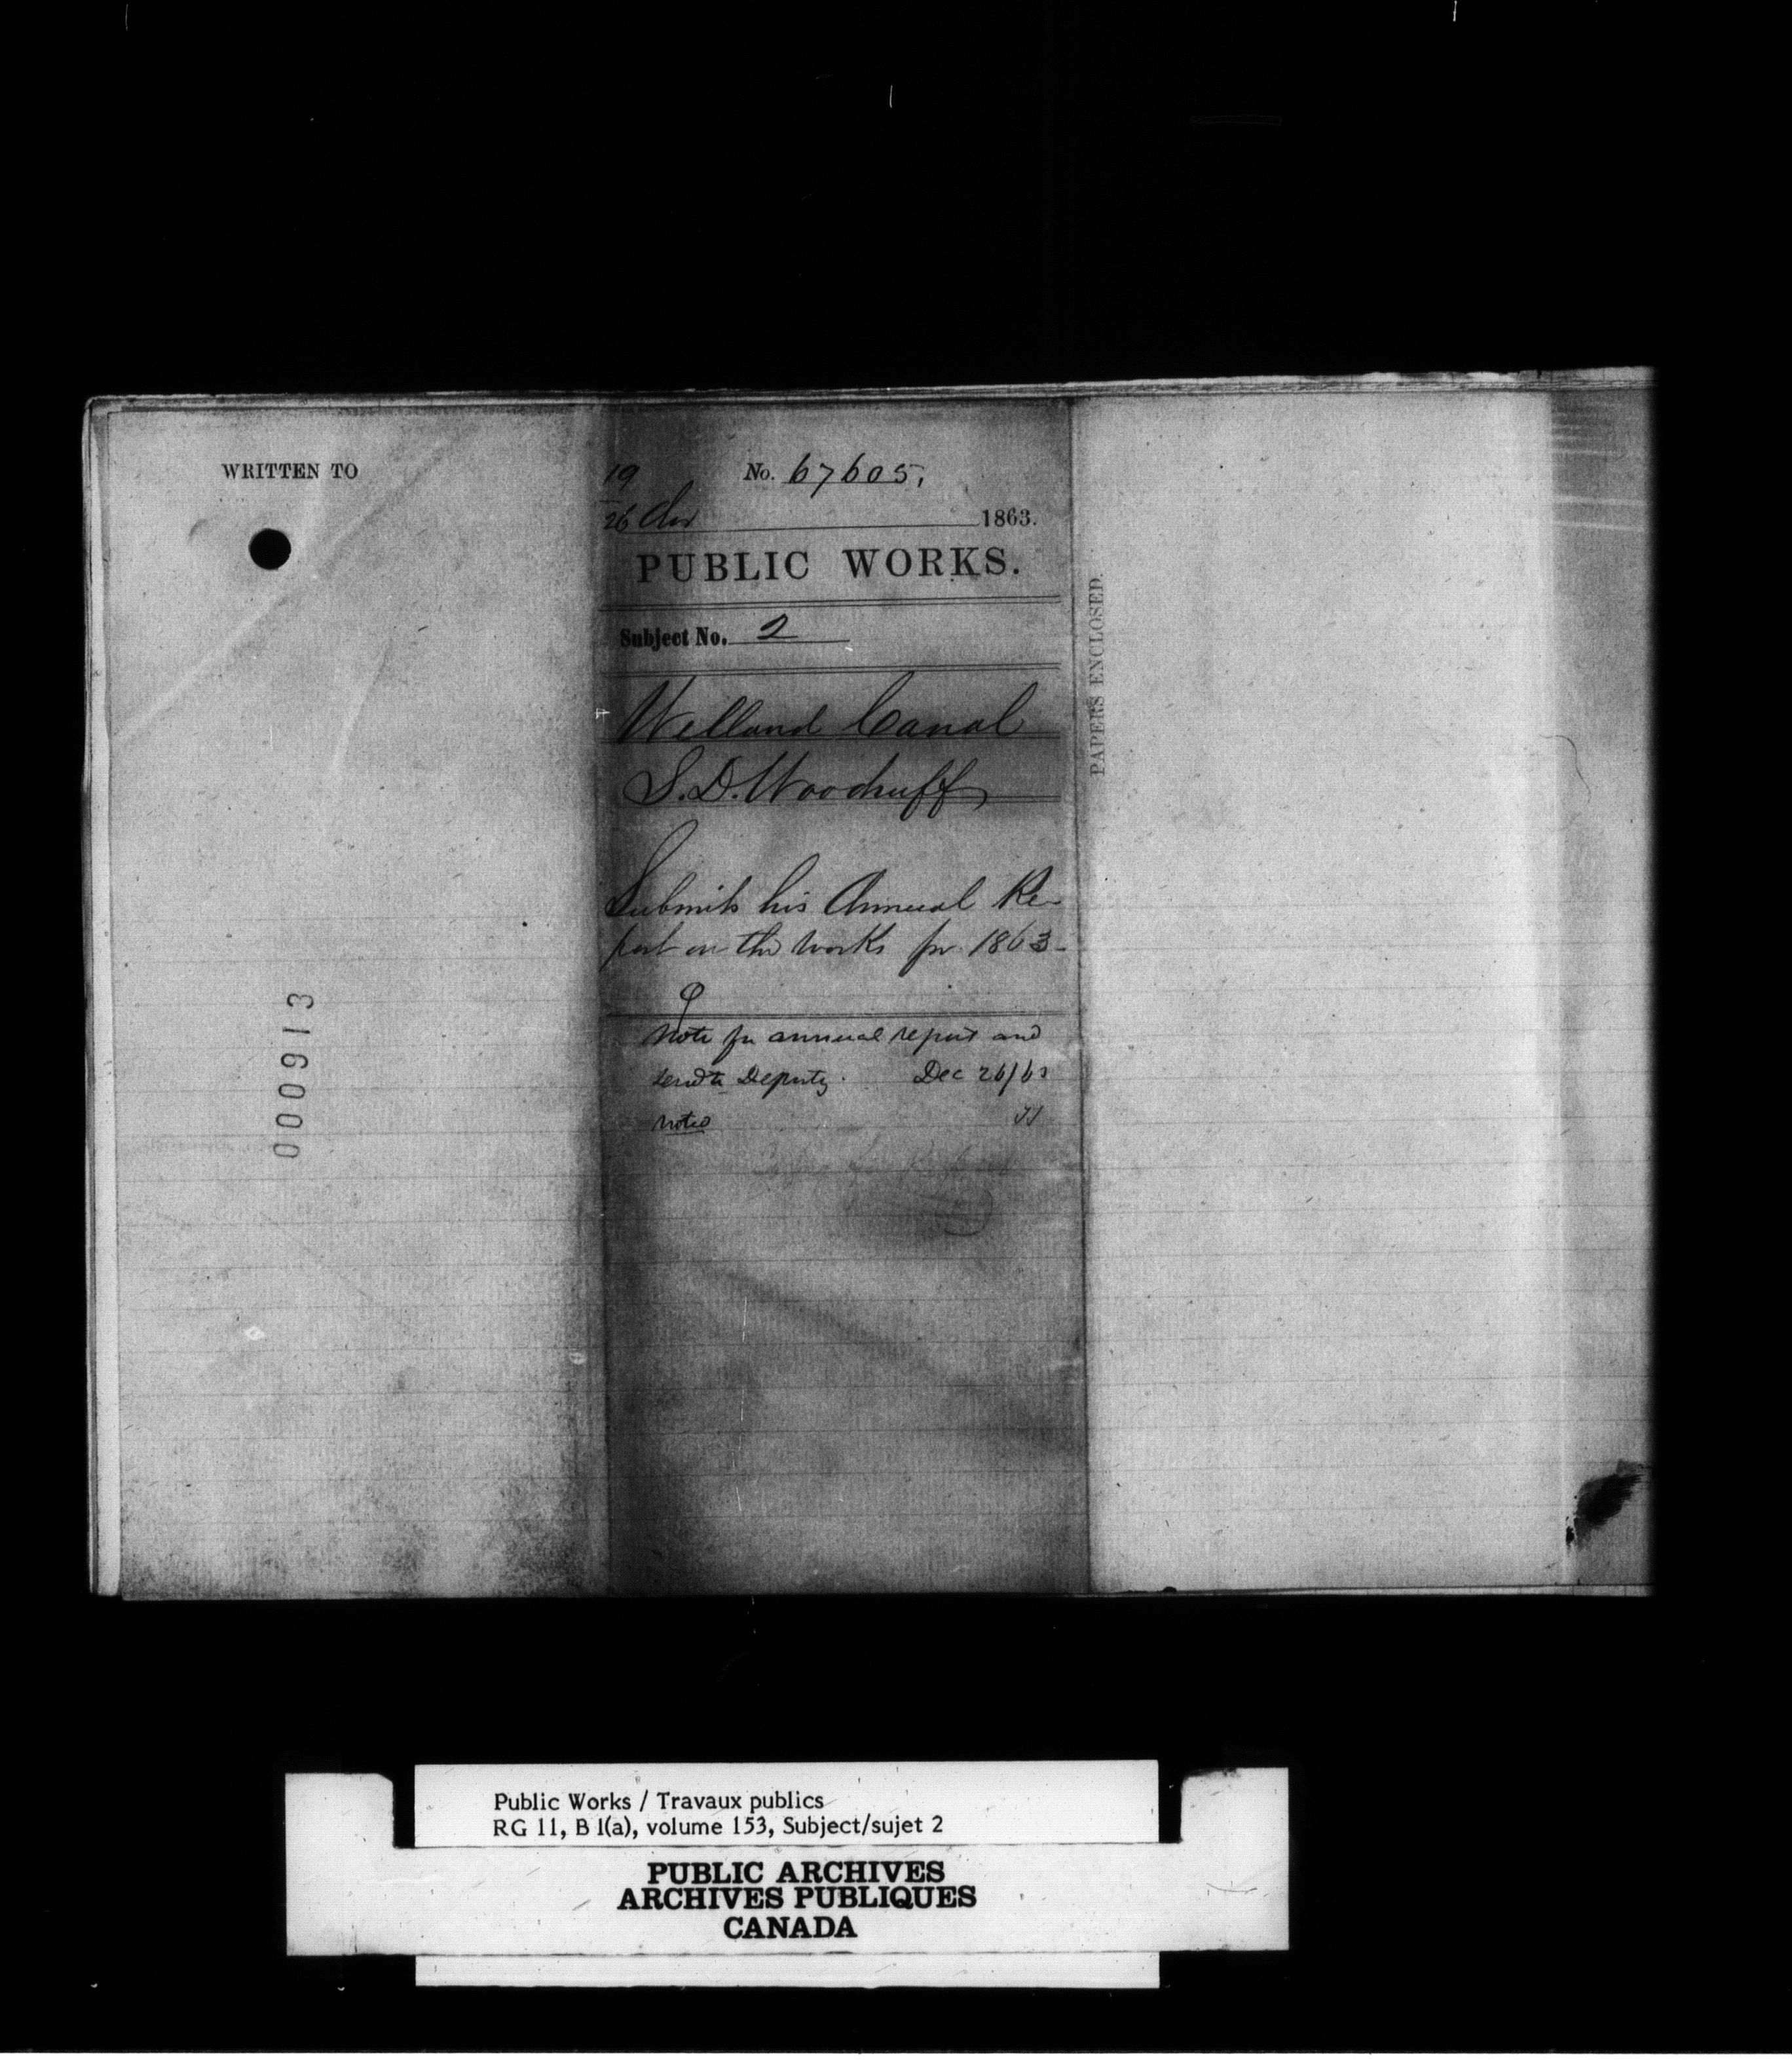 WRITTEN TO
000913
19 No. 67605.
26 Dec 1863.
PUBLIC WORKS.
Subject No. 2
Welland Canal
S. D. Woodruff
Submits his Annual Re-
port on the works for 1863-
Note for annual report and
send to Deputy. Dec 26/63
noted
PAPERS ENCLOSED.
Public Works / Travaux publics
RG 11, B 1(a), volume 153, Subject/sujet 2
PUBLIC ARCHIVES
ARCHIVES PUBLIQUES
CANADA